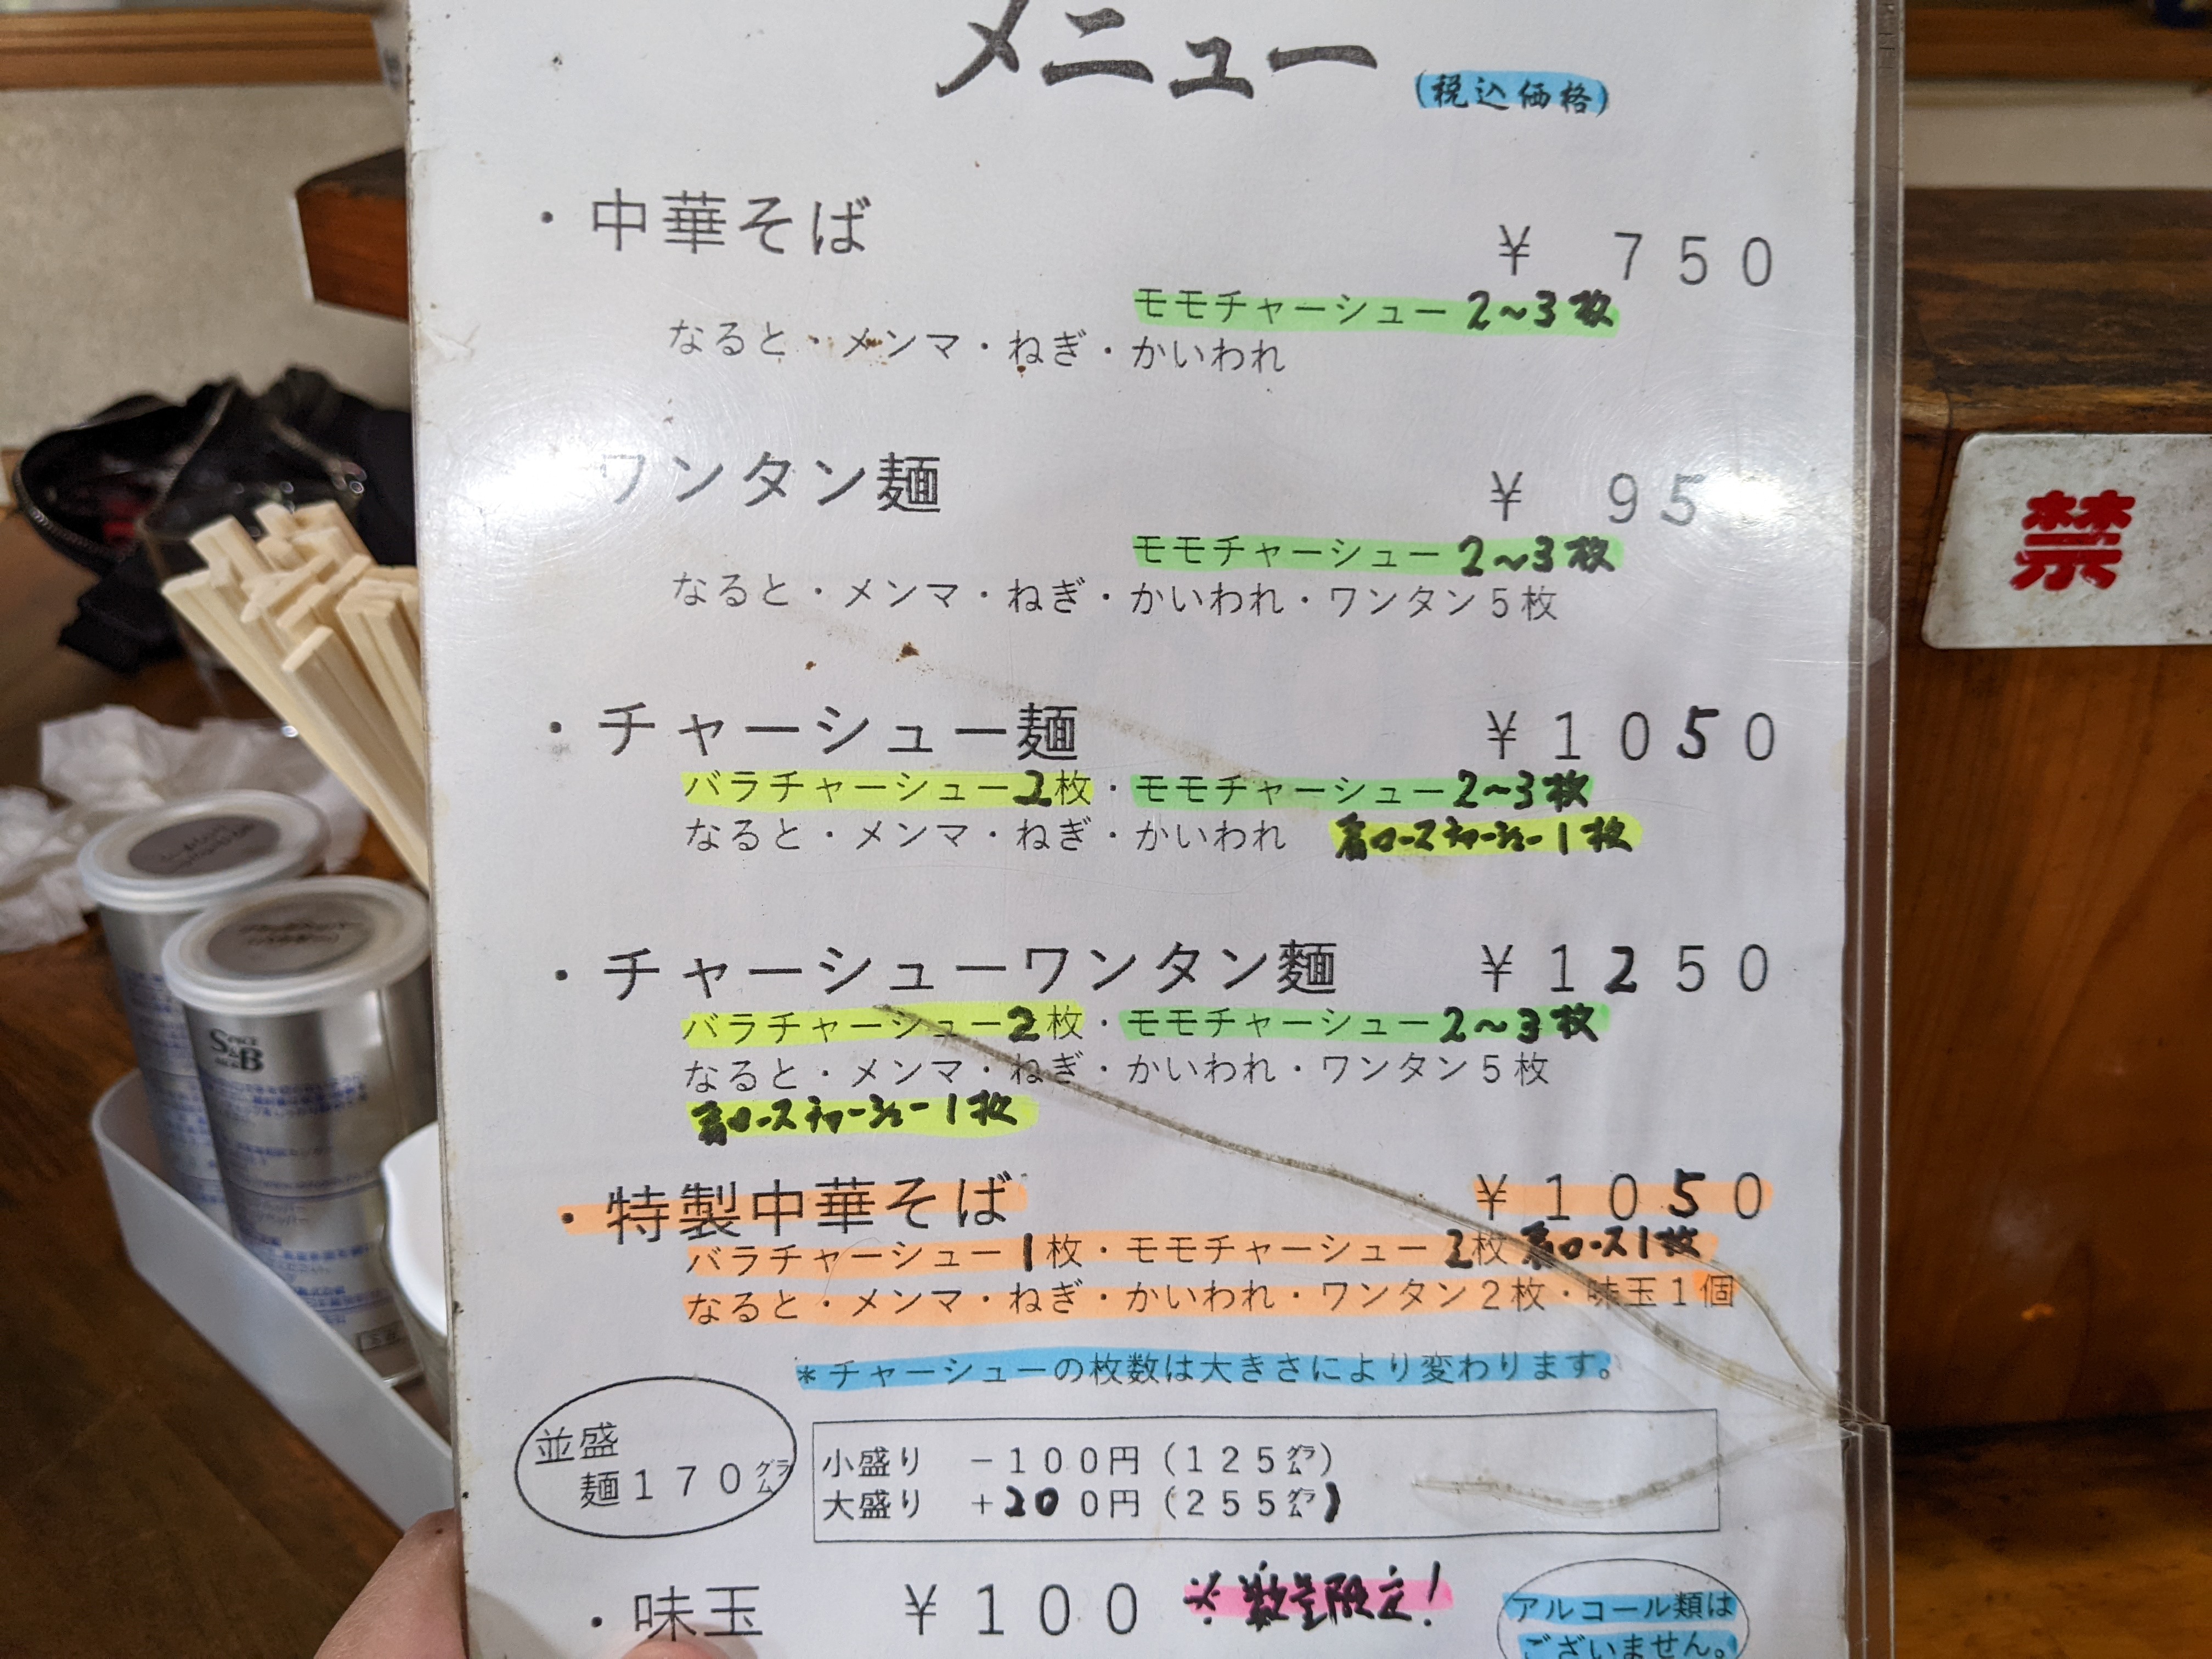 メニュー (税込価格)
・中華そば ¥ 750
モモチャーシュー2～3枚
なると・メンマ・ねぎ・かいわれ
ワンタン麺 ¥ 95
モモチャーシュー2～3枚
なると・メンマ・ねぎ・かいわれ・ワンタン5枚
・チャーシュー麺 ¥1050
バラチャーシュー2枚・モモチャーシュー2～3枚
なると・メンマ・ねぎ・かいわれ 肩ロースチャーシュー1枚
・チャーシューワンタン麵 ¥1250
バラチャーシュー2枚・モモチャーシュー2～3枚
なると・メンマ・ねぎ・かいわれ・ワンタン5枚
肩ロースチャーシュー1枚
・特製中華そば ¥1050
バラチャーシュー1枚・モモチャーシュー2枚 肩ロース1枚
なると・メンマ・ねぎ・かいわれ・ワンタン2枚・味玉1個
*チャーシューの枚数は大きさにより変わります。
並盛
麺170㌘
小盛り －100円(125㌘)
大盛り ＋200円(255㌘)
・味玉 ¥100 ※数量限定!
アルコール類は
ございません。
禁
S&B